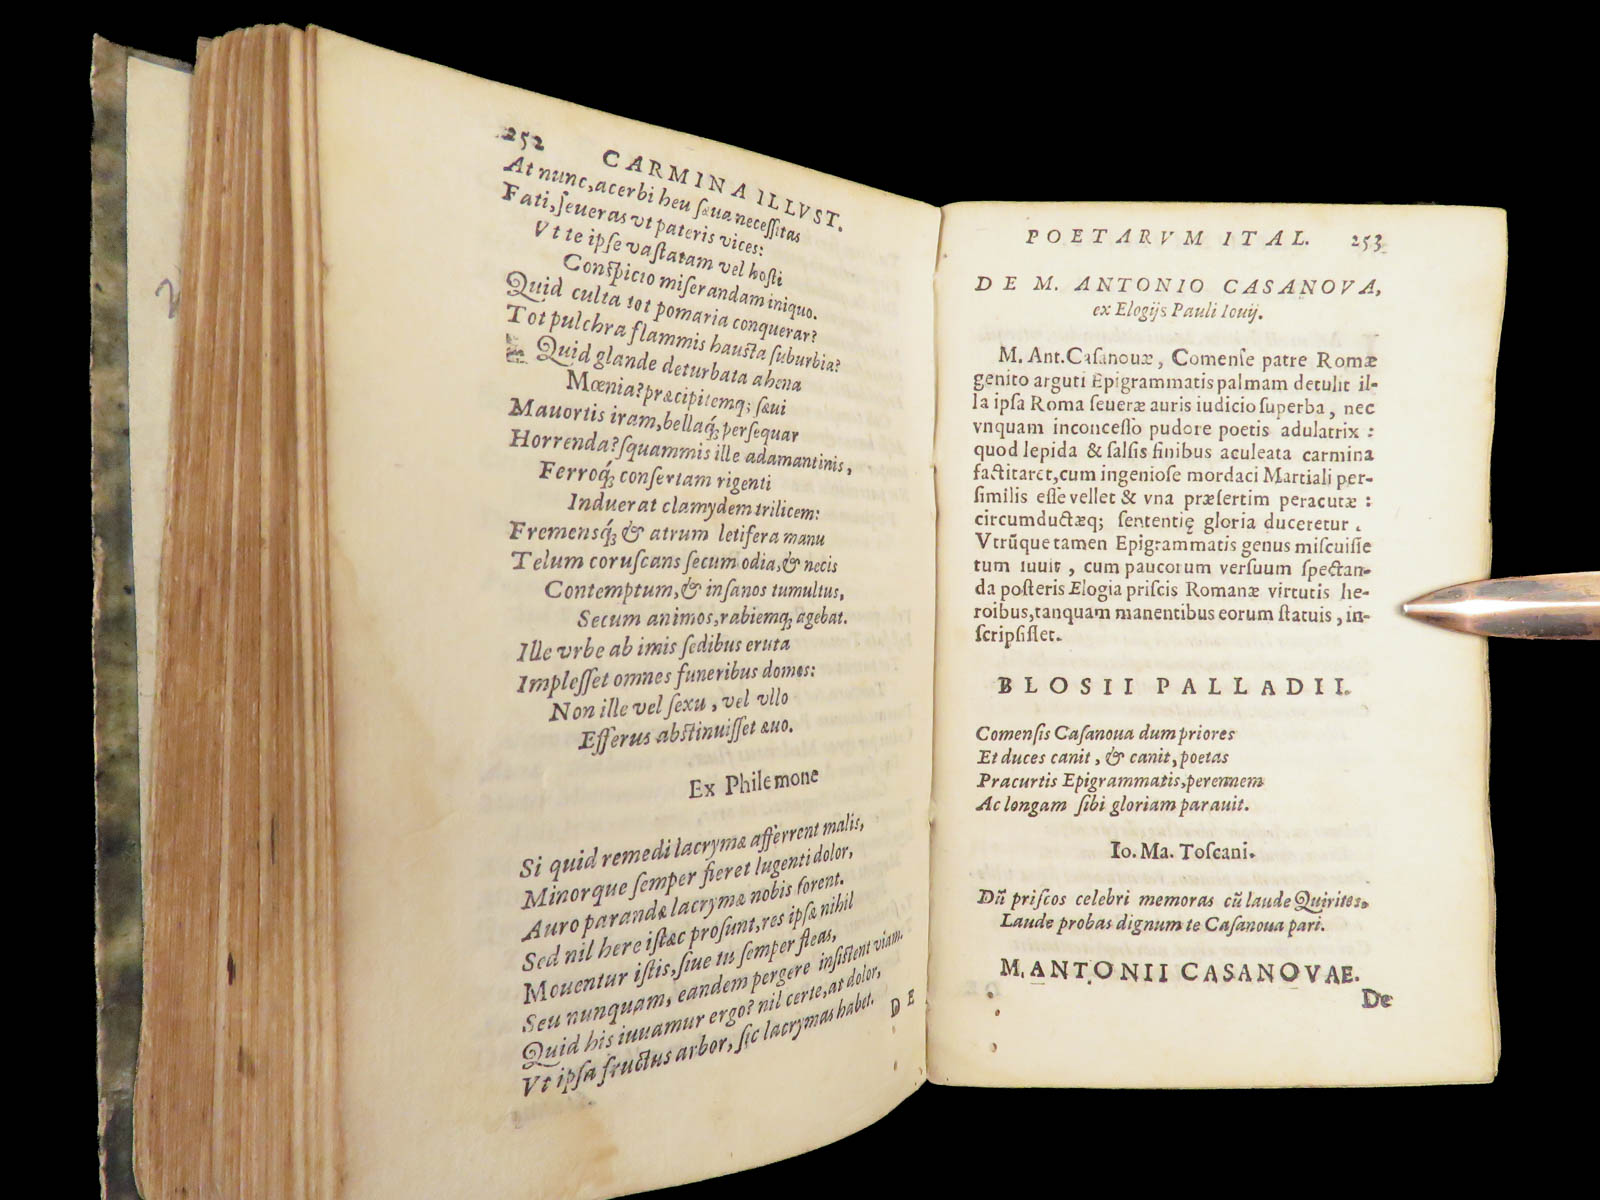 252 CARMINA ILLVST.
At nunc, acerbi heu sæua necessitas
Fati, seueras vt pateris vices:
Vt te ipse vastatam vel hosti
Conspicio miserandam iniquo.
Quid culta tot pomaria conquerar?
Tot pulchra flammis hausta suburbia?
Quid glande deturbata ahena
Mœnia? præcipitemq; sæui
Mauortis iram, bellaq́; persequar
Horrenda? squammis ille adamantinis,
Ferroq́; consertam rigenti
Induerat clamydem trilicem:
Fremensq́; & atrum letifera manu
Telum coruscans secum odia, & necis
Contemptum, & insanos tumultus,
Secum animos, rabiemq; agebat.
Ille vrbe ab imis sedibus eruta
Implesset omnes funeribus domos:
Non ille vel sexu, vel vllo
Efferus abstinuisset æuo.
Ex Philemone
Si quid remedi lacrymæ afferrent malis,
Minorque semper fieret lugenti dolor,
Auro parandæ lacrymæ nobis forent.
Sed nil here istæc prosunt, res ipsæ nihil
Mouentur istis, siue tu semper fleas,
Seu nunquam, eandem pergere insistent viam.
Quid his iuuamur ergo? nil certe, at dolor,
Vt ipsa fructus arbor, sic lacrymas habet.
DE
POETARVM ITAL. 253
DE M. ANTONIO CASANOVA,
ex Elogijs Pauli Iouij.
M. Ant. Casanouæ, Comense patre Romæ
genito arguti Epigrammatis palmam detulit il-
la ipsa Roma seueræ auris iudicio superba, nec
vnquam inconcesso pudore poetis adulatrix:
quod lepida & salsis finibus aculeata carmina
factitaret, cum ingeniose mordaci Martiali per-
similis esse vellet & vna præsertim peracutæ:
circumductæq; sententię gloria duceretur.
Vtrūque tamen Epigrammatis genus miscuisse
tum iuuit, cum paucorum versuum spectan-
da posteris Elogia priscis Romanæ virtutis he-
roibus, tanquam manentibus eorum statuis, in-
scripsisset.
BLOSII PALLADII.
Comensis Casanoua dum priores
Et duces canit, & canit, poetas
Præcurtis Epigrammatis, perennem
Ac longam sibi gloriam parauit.
Io. Ma. Toscani.
Dū priscos celebri memoras cū laude Quirites.
Laude probas dignum te Casanoua pari.
M. ANTONII CASANOVAE.
De